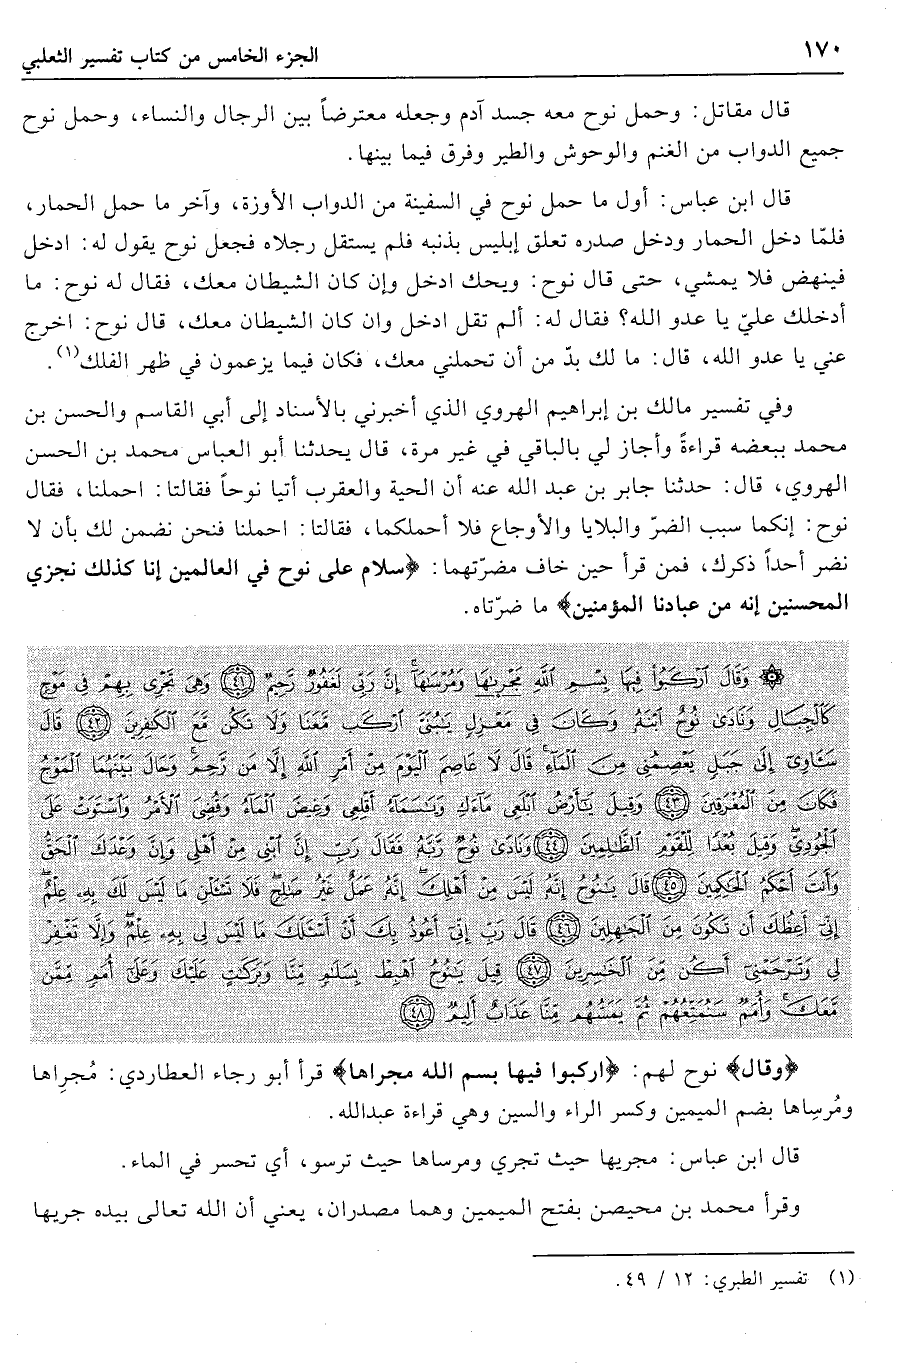 ١٧٠
الجزء الخامس من كتاب تفسير الثعلبي
قال مقاتل: وحمل نوح معه جسد آدم وجعله معترضاً بين الرجال والنساء، وحمل نوح
جميع الدواب من الغنم والوحوش والطير وفرق فيما بينها.
قال ابن عباس: أول ما حمل نوح في السفينة من الدواب الأوزة، وآخر ما حمل الحمار،
فلمّا دخل الحمار ودخل صدره تعلق إبليس بذنبه فلم يستقل رجلاه فجعل نوح يقول له: ادخل
فينهض فلا يمشي، حتى قال نوح: ويحك ادخل وإن كان الشيطان معك، فقال له نوح: ما
أدخلك عليّ يا عدو الله؟ فقال له: ألم تقل ادخل وان كان الشيطان معك، قال نوح: اخرج
عني يا عدو الله، قال: ما لك بدّ من أن تحملني معك، فكان فيما يزعمون في ظهر الفلك(١).
وفي تفسير مالك بن إبراهيم الهروي الذي أخبرني بالأسناد إلى أبي القاسم والحسن بن
محمد ببعضه قراءةً وأجاز لي بالباقي في غير مرة، قال يحدثنا أبو العباس محمد بن الحسن
الهروي، قال: حدثنا جابر بن عبد الله عنه أن الحية والعقرب أتيا نوحاً فقالتا: احملنا، فقال
نوح: إنكما سبب الضرّ والبلايا والأوجاع فلا أحملكما، فقالتا: احملنا فنحن نضمن لك بأن لا
نضر أحداً ذكرك، فمن قرأ حين خاف مضرّتهما: ﴿سلام على نوح في العالمين إنا كذلك نجزي
المحسنين إنه من عبادنا المؤمنين﴾ ما ضرّتاه.
۞ وَقَالَ ٱرْكَبُوا۟ فِيهَا بِسْمِ ٱللَّهِ مَجْر۪ىٰهَا وَمُرْسَىٰهَآ إِنَّ رَبِّى لَغَفُورٌ رَّحِيمٌ ﴿٤١﴾ وَهِىَ تَجْرِى بِهِمْ فِى مَوْجٍ
كَٱلْجِبَالِ وَنَادَىٰ نُوحٌ ٱبْنَهُۥ وَكَانَ فِى مَعْزِلٍ يَٰبُنَىَّ ٱرْكَب مَّعَنَا وَلَا تَكُن مَّعَ ٱلْكَٰفِرِينَ ﴿٤٢﴾ قَالَ
سَـَٔاوِىٓ إِلَىٰ جَبَلٍ يَعْصِمُنِى مِنَ ٱلْمَآءِ قَالَ لَا عَاصِمَ ٱلْيَوْمَ مِنْ أَمْرِ ٱللَّهِ إِلَّا مَن رَّحِمَ وَحَالَ بَيْنَهُمَا ٱلْمَوْجُ
فَكَانَ مِنَ ٱلْمُغْرَقِينَ ﴿٤٣﴾ وَقِيلَ يَٰٓأَرْضُ ٱبْلَعِى مَآءَكِ وَيَٰسَمَآءُ أَقْلِعِى وَغِيضَ ٱلْمَآءُ وَقُضِىَ ٱلْأَمْرُ وَٱسْتَوَتْ عَلَى
ٱلْجُودِىِّ وَقِيلَ بُعْدًا لِّلْقَوْمِ ٱلظَّٰلِمِينَ ﴿٤٤﴾ وَنَادَىٰ نُوحٌ رَّبَّهُۥ فَقَالَ رَبِّ إِنَّ ٱبْنِى مِنْ أَهْلِى وَإِنَّ وَعْدَكَ ٱلْحَقُّ
وَأَنتَ أَحْكَمُ ٱلْحَٰكِمِينَ ﴿٤٥﴾ قَالَ يَٰنُوحُ إِنَّهُۥ لَيْسَ مِنْ أَهْلِكَ إِنَّهُۥ عَمَلٌ غَيْرُ صَٰلِحٍ فَلَا تَسْـَٔلْنِ مَا لَيْسَ لَكَ بِهِۦ عِلْمٌ
إِنِّىٓ أَعِظُكَ أَن تَكُونَ مِنَ ٱلْجَٰهِلِينَ ﴿٤٦﴾ قَالَ رَبِّ إِنِّىٓ أَعُوذُ بِكَ أَنْ أَسْـَٔلَكَ مَا لَيْسَ لِى بِهِۦ عِلْمٌ وَإِلَّا تَغْفِرْ
لِى وَتَرْحَمْنِىٓ أَكُن مِّنَ ٱلْخَٰسِرِينَ ﴿٤٧﴾ قِيلَ يَٰنُوحُ ٱهْبِطْ بِسَلَٰمٍ مِّنَّا وَبَرَكَٰتٍ عَلَيْكَ وَعَلَىٰٓ أُمَمٍ مِّمَّن
مَّعَكَ وَأُمَمٌ سَنُمَتِّعُهُمْ ثُمَّ يَمَسُّهُم مِّنَّا عَذَابٌ أَلِيمٌ ﴿٤٨﴾
﴿وقال﴾ نوح لهم: ﴿اركبوا فيها بسم الله مجراها﴾ قرأ أبو رجاء العطاردي: مُجراها
ومُرساها بضم الميمين وكسر الراء والسين وهي قراءة عبدالله.
قال ابن عباس: مجريها حيث تجري ومرساها حيث ترسو، أي تحسر في الماء.
وقرأ محمد بن محيصن بفتح الميمين وهما مصدران، يعني أن الله تعالى بيده جريها
(١) تفسير الطبري: ١٢ / ٤٩.